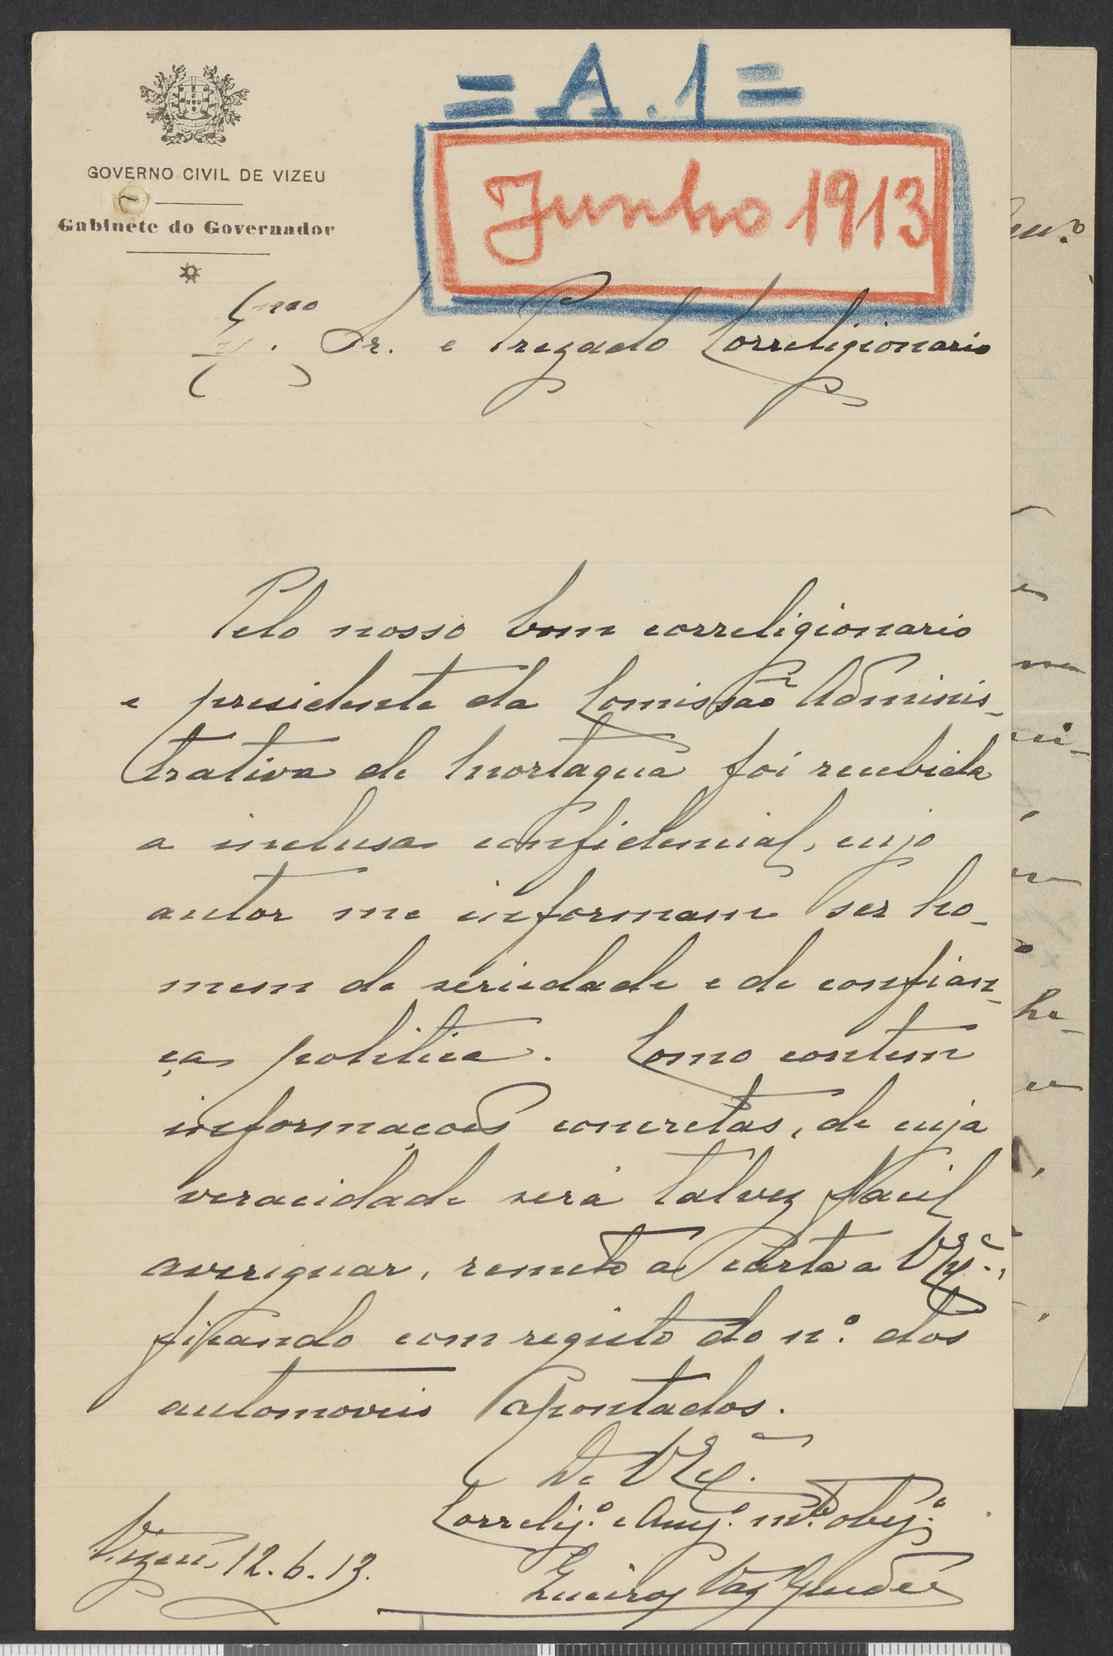 = A.1 =
Junho 1913
GOVERNO CIVIL DE VIZEU
Gabinete do Governador
Exmo Sr. e Prezado Correligionario
Pelo nosso bom correligionario
e presidente da Comissão Adminis-
trativa de Mortagua foi recebida
a inclusa confidencial, cujo
autor me informam ser ho-
mem de seriedade e de confian-
ça politica. Como contem
informações concretas, de cuja
veracidade será talvez facil
averiguar, remeto a carta a V. Exª.,
ficando com registo do nº. dos
automoveis apontados.
De V. Exª.
Correlig.º e Amg.º mtº obgº.
Vizeu, 12.6.13.
Vaz